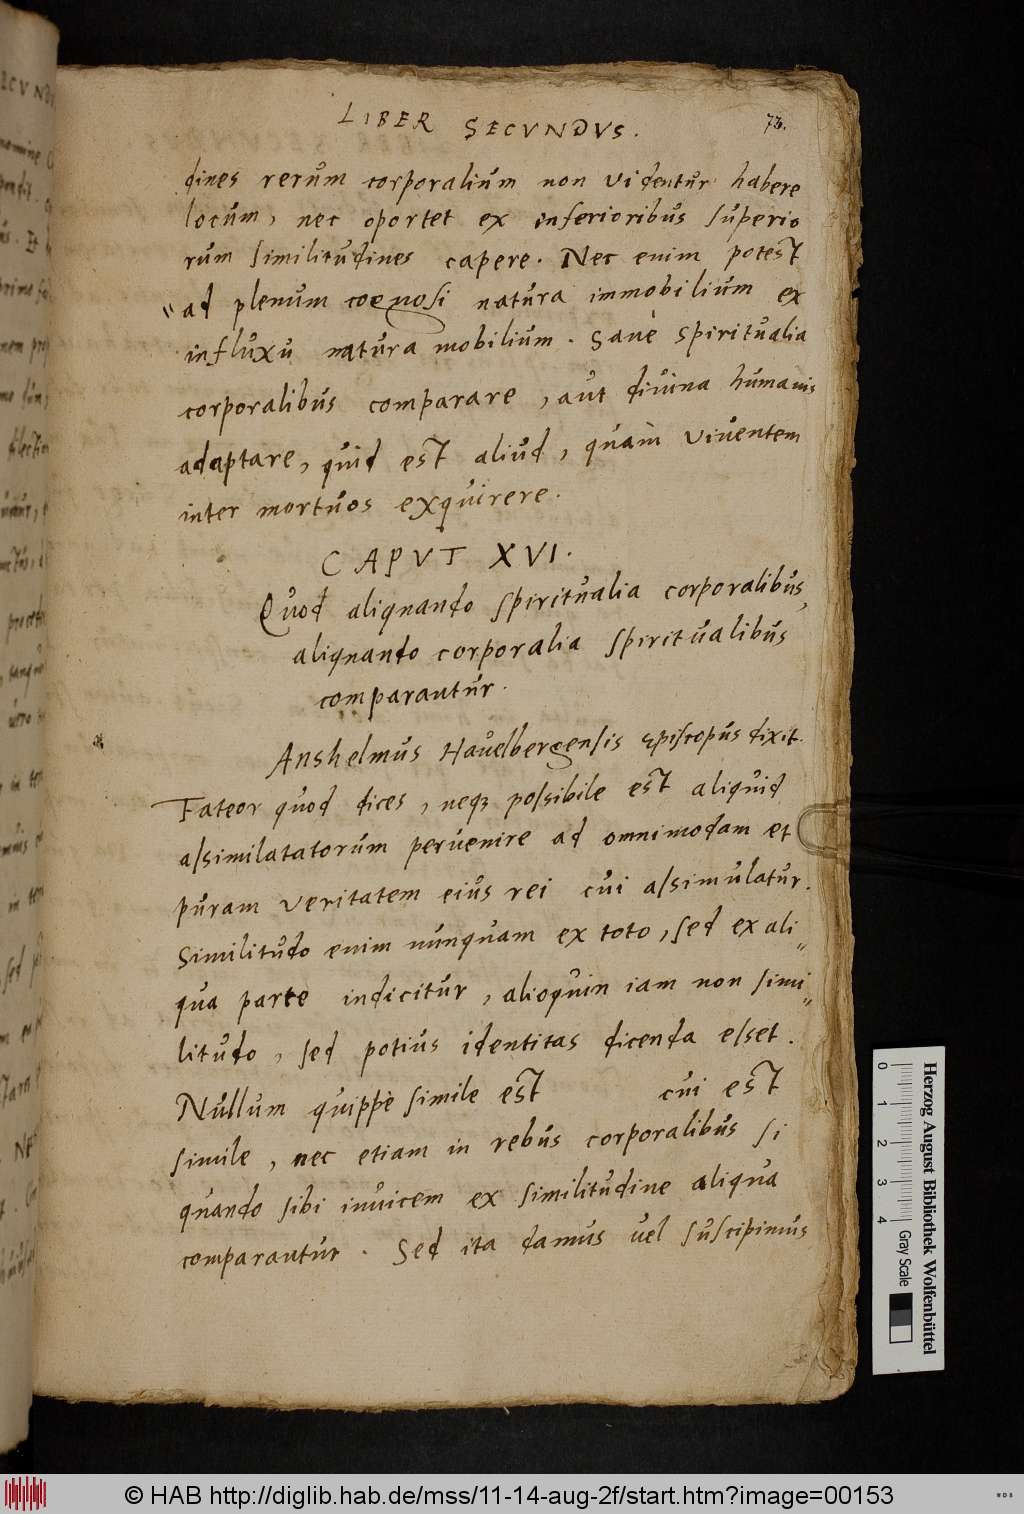 LIBER SECVNDVS.
73.
dines rerum corporalium non videntur habere
locum, nec oportet ex inferioribus superio
rum similitudines capere. Nec enim potest
ad plenum cognosi natura immobilium ex
influxu natura mobilium. Sanè spiritualia
corporalibus comparare, aut divina humanis
adaptare, quid est aliud, quàm viventem
inter mortuos exquirere.
CAPVT XVI.
Quod aliquando spiritualia corporalibus,
aliquando corporalia spiritualibus
comparantur.
Anshelmus Havelbergensis Episcopus dixit.
Fateor quod dices, neqȝ possibile est aliquid
assimilatatorum pervenire ad omnimodam et
puram veritatem eius rei cui assimulatur.
Similitudo enim nunquam ex toto, sed ex ali
qua parte indicitur, alioquin iam non simi
litudo, sed potius identitas dicenda esset.
Nullum quippè simile est cui est
simile, nec etiam in rebus corporalibus si
quando sibi invicem ex similitudine aliqua
comparantur. Sed ita damus vel suscipimus
0 1 2 3 4
Gray Scale
Herzog August Bibliothek Wolfenbüttel
© HAB http://diglib.hab.de/mss/11-14-aug-2f/start.htm?image=00153